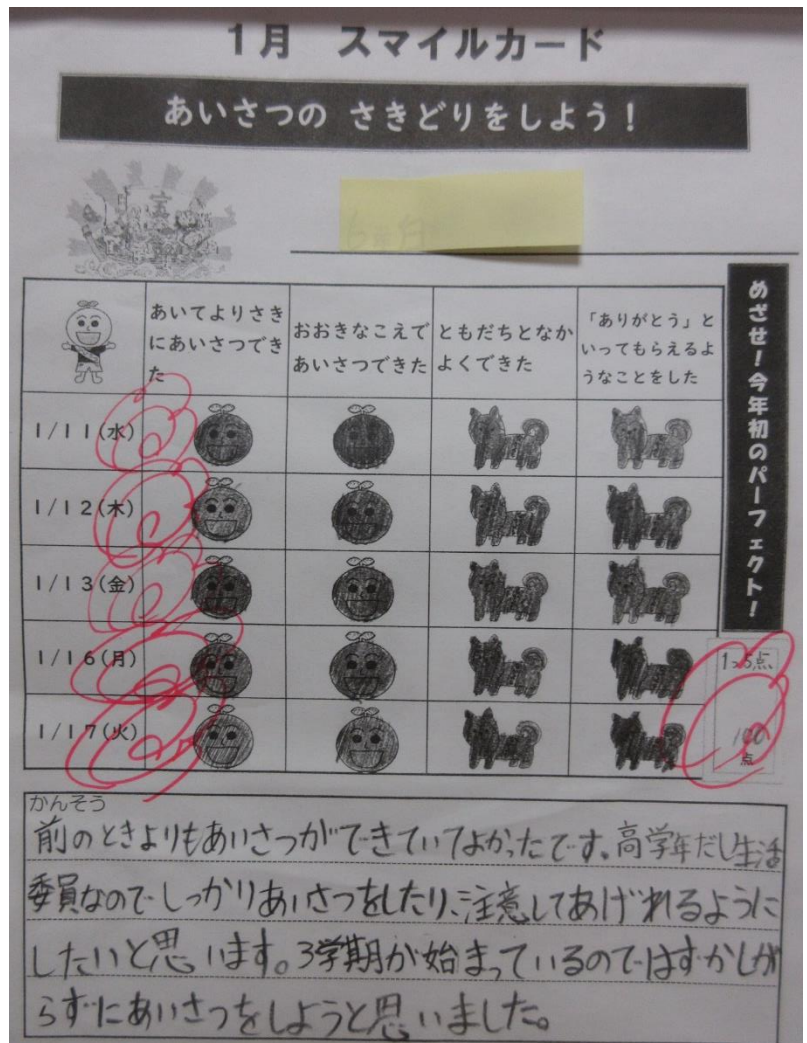 1月 スマイルカード
あいさつの さきどりをしよう！
あいてよりさき
にあいさつでき
た
おおきなこえで
あいさつできた
ともだちとなか
よくできた
「ありがとう」と
いってもらえるよ
うなことをした
めざせ！今年初のパーフェクト！
1/11(水)
1/12(木)
1/13(金)
1/16(月)
1/17(火)
1つ5点
100
点
かんそう
前のときよりもあいさつができていてよかったです。高学年だし生活
委員なのでしっかりあいさつをしたり、注意してあげれるように
したいと思います。3学期が始まっているのではずかしが
らずにあいさつをしようと思いました。